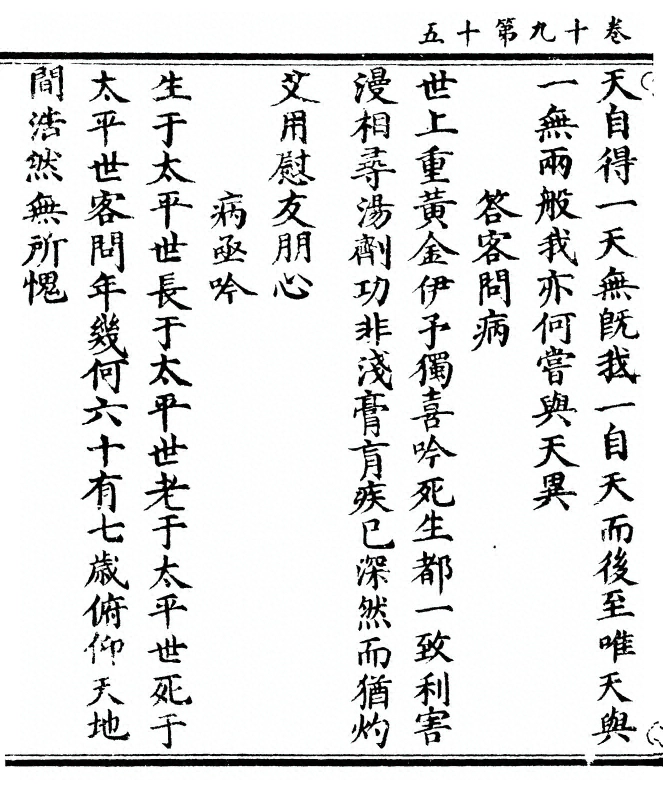 卷十九第十五
天自得一天無既我一自天而後至唯天與
一無兩般我亦何嘗與天異
答客問病
世上重黃金伊予獨喜吟死生都一致利害
漫相尋湯劑功非淺膏肓疾已深然而猶灼
艾用慰友朋心
病亟吟
生于太平世長于太平世老于太平世死于
太平世客問年幾何六十有七歲俯仰天地
間浩然無所愧